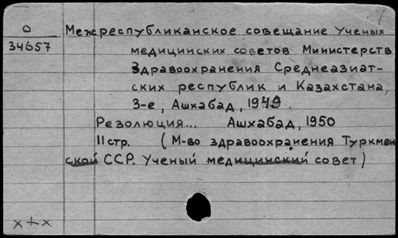 О
34657
Межреспубликанское совещание Ученых
медицинских советов Министерств
Здравоохранения Среднеазиат-
ских республик и Казахстана,
3-е, Ашхабад, 1949.
Резолюция... Ашхабад, 1950
11стр. (М-во здравоохранения Туркмен
ской ССР. Ученый медицинский совет)
х+х